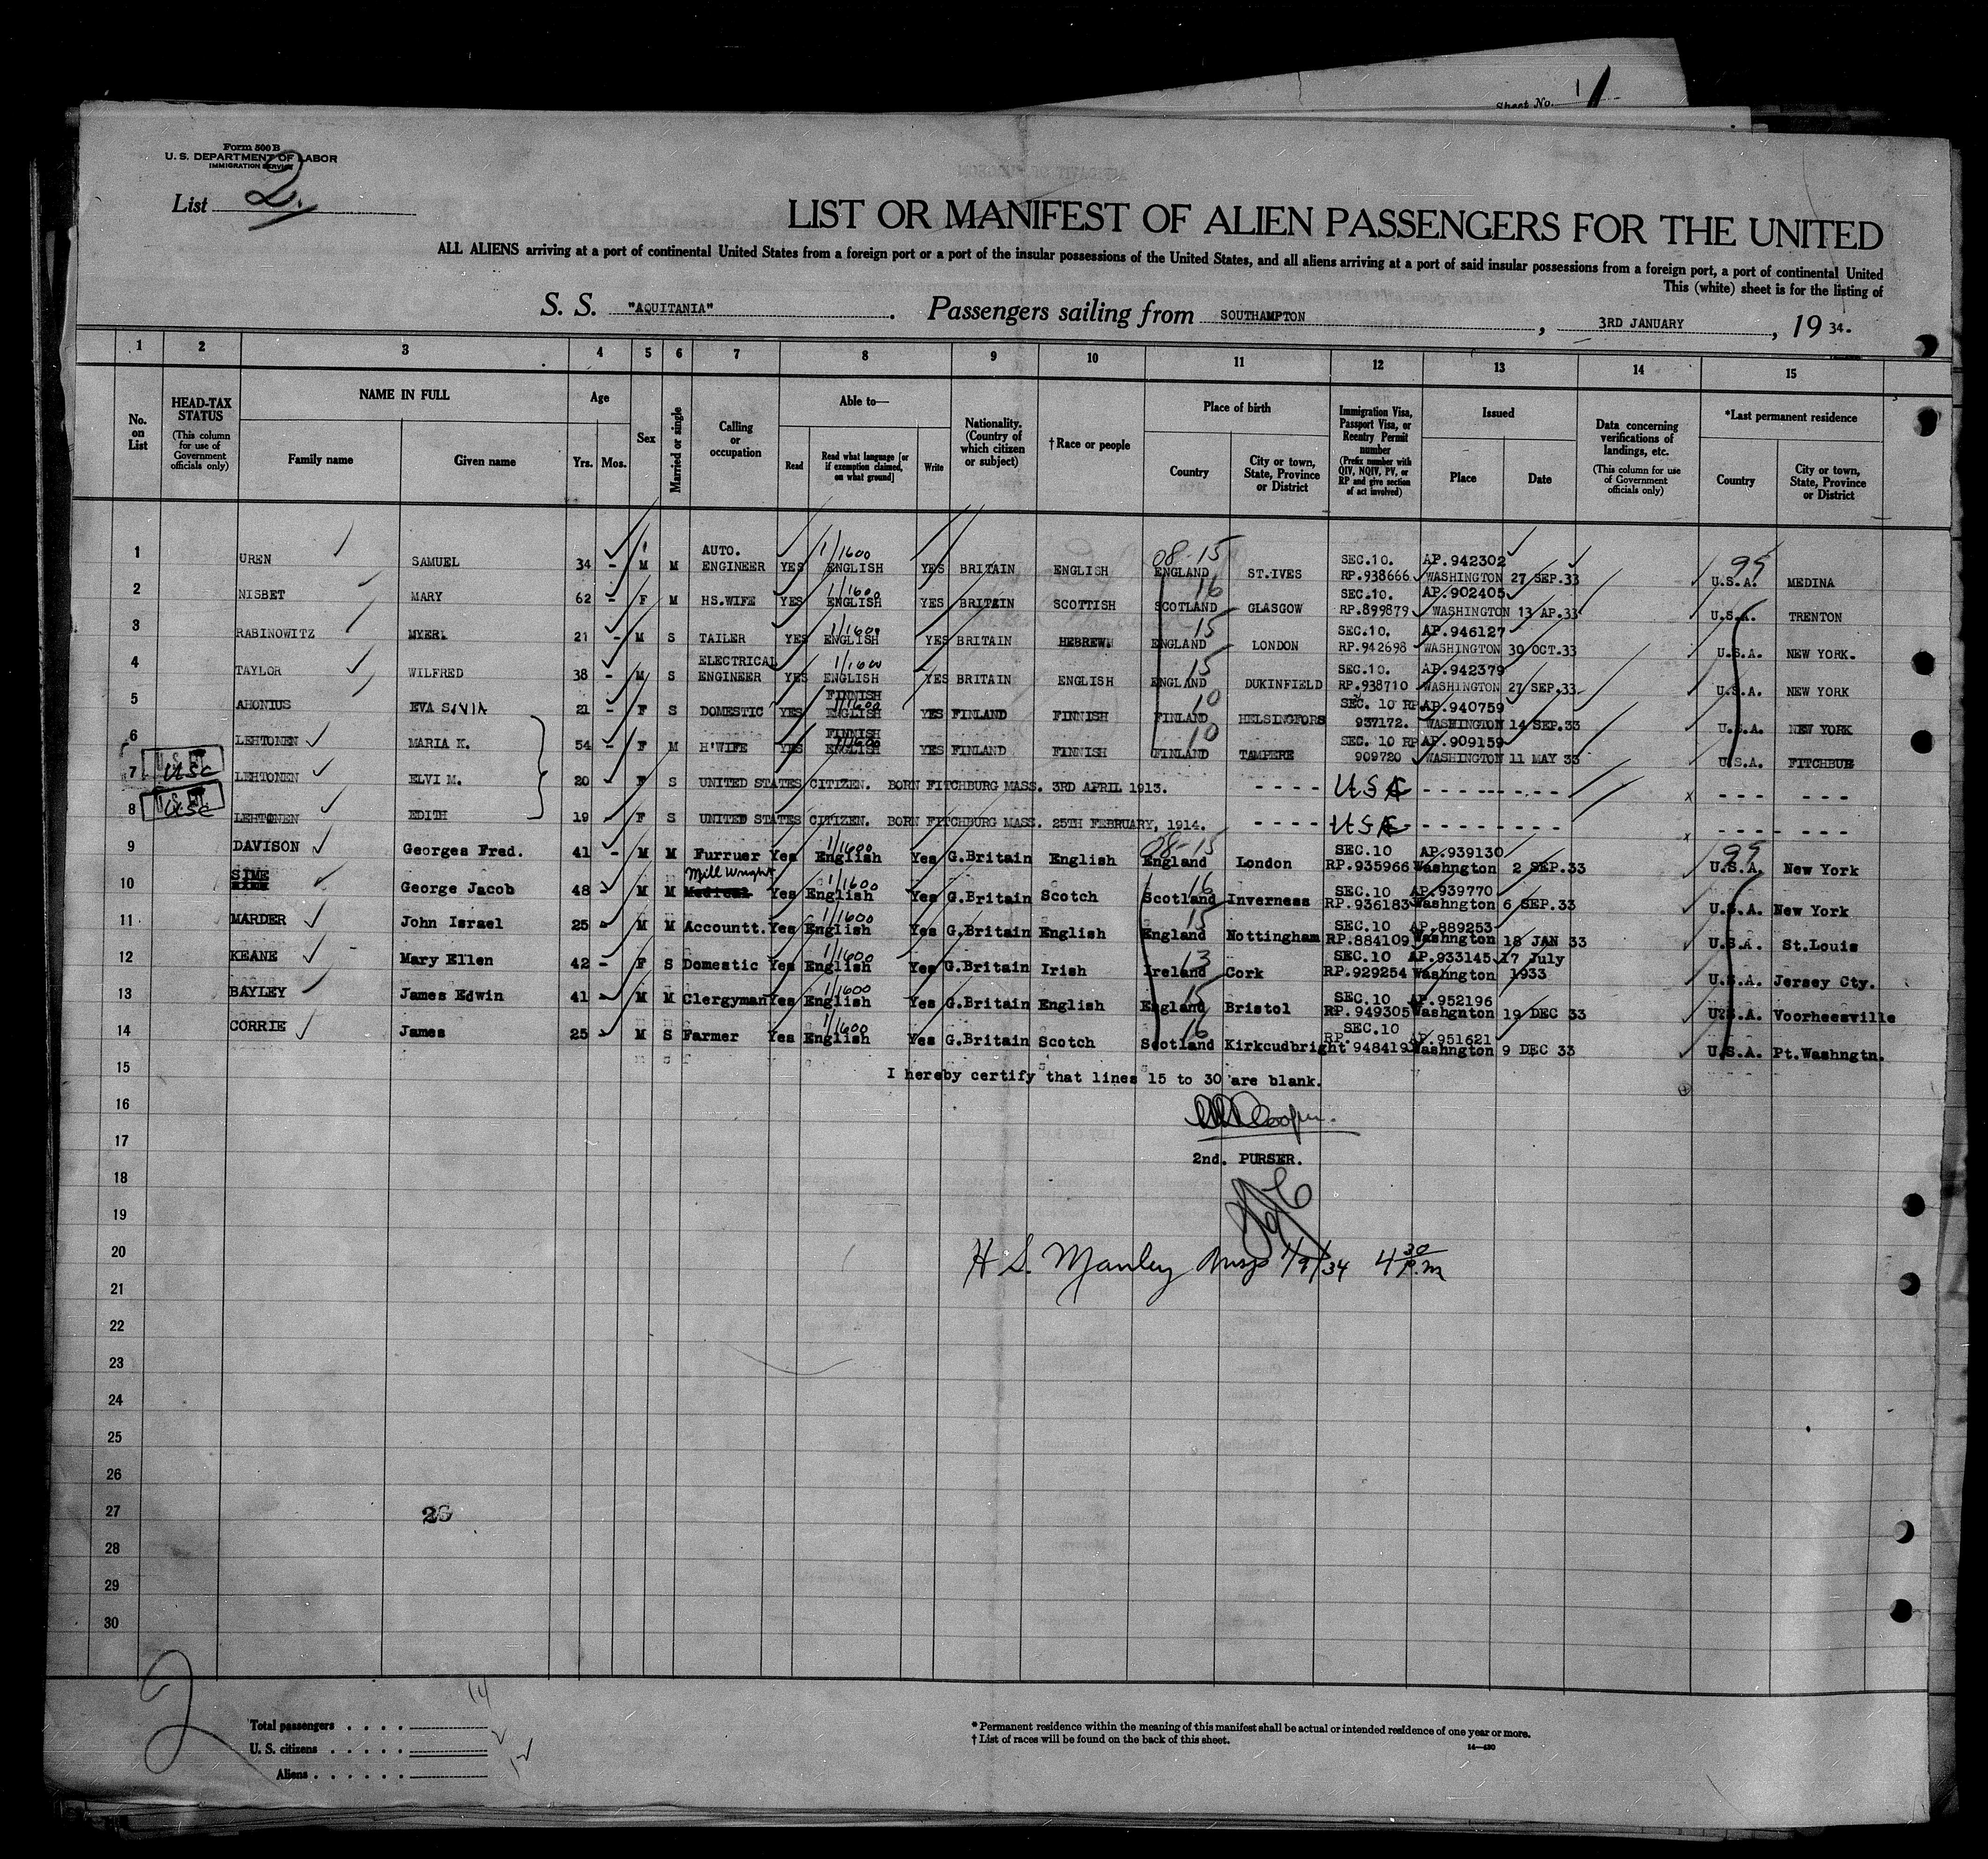 Sheet No. 1
Form 500 B
U. S. DEPARTMENT OF LABOR
IMMIGRATION SERVICE
List 2.
LIST OR MANIFEST OF ALIEN PASSENGERS FOR THE UNITED
ALL ALIENS arriving at a port of continental United States from a foreign port or a port of the insular possessions of the United States, and all aliens arriving at a port of said insular possessions from a foreign port, a port of continental United
This (white) sheet is for the listing of
S. S. "AQUITANIA". Passengers sailing from SOUTHAMPTON, 3RD JANUARY, 19 34.
1 2 3 4 5 6 7 8 9 10 11 12 13 14 15
No. on List
HEAD-TAX STATUS
(This column for use of Government officials only)
NAME IN FULL
Family name
Given name
Age
Yrs. Mos.
Sex
Married or single
Calling or occupation
Able to—
Read
Read what language [or if exemption claimed, on what ground]
Write
Nationality. (Country of which citizen or subject)
†Race or people
Place of birth
Country
City or town, State, Province or District
Immigration Visa, Passport Visa, or Reentry Permit number
(Prefix number with QIV, NQIV, PV, or RP and give section of act involved)
Issued
Place
Date
Data concerning verifications of landings, etc.
(This column for use of Government officials only)
*Last permanent residence
Country
City or town, State, Province or District
1 UREN SAMUEL 34 - M M AUTO. ENGINEER YES 1/1600 ENGLISH YES BRITAIN ENGLISH 08-15 ENGLAND ST.IVES SEC.10. RP.938666 AP.942302 WASHINGTON 27 SEP.33 99 U.S.A. MEDINA
2 NISBET MARY 62 - F M HS.WIFE YES 1/1600 ENGLISH YES BRITAIN SCOTTISH 16 SCOTLAND GLASGOW SEC.10. RP.899879 AP.902405 WASHINGTON 13 AP.33 U.S.A. TRENTON
3 RABINOWITZ MYERL 21 - M S TAILER YES 1/1600 ENGLISH YES BRITAIN HEBREW. 15 ENGLAND LONDON SEC.10. RP.942698 AP.946127 WASHINGTON 30 OCT.33 U.S.A. NEW YORK.
4 TAYLOR WILFRED 38 - M S ELECTRICAL ENGINEER YES 1/1600 ENGLISH YES BRITAIN ENGLISH 15 ENGLAND DUKINFIELD SEC.10. RP.938710 AP.942379 WASHINGTON 27 SEP.33 U.S.A. NEW YORK
5 AHONIUS EVA SIVIA 21 - F S DOMESTIC YES FINNISH 1/1600 ENGLISH YES FINLAND FINNISH 10 FINLAND HELSINGFORS SEC. 10 RP 937172. AP.940759 WASHINGTON 14 SEP.33 U.S.A. NEW YORK
6 LEHTONEN MARIA K. 54 - F M H'WIFE YES FINNISH 1/1600 ENGLISH YES FINLAND FINNISH 10 FINLAND TAMPERE SEC. 10 RP 909720 AP.909159 WASHINGTON 11 MAY 33 U.S.A. FITCHBUR
7 USC LEHTONEN ELVI M. 20 F S UNITED STATES CITIZEN. BORN FITCHBURG MASS. 3RD APRIL 1913. - - - - USC - - - - - - - - - x - - - - - -
8 USC LEHTONEN EDITH 19 F S UNITED STATES CITIZEN. BORN FITCHBURG MASS. 25TH FEBRUARY, 1914. - - - - USC - - - - - - - - - x - - - - - -
9 DAVISON Georges Fred. 41 - M M Furruer Yes 1/1600 English Yes G.Britain English 08-15 England London SEC.10 RP.935966 AP.939130 Washngton 2 SEP.33 99 U.S.A. New York
10 SIME George Jacob 48 - M M Mill Wright Medical Yes 1/1600 English Yes G.Britain Scotch 16 Scotland Inverness SEC.10 RP.936183 AP.939770 Washngton 6 SEP.33 U.S.A. New York
11 MARDER John Israel 25 - M M Accountt. Yes 1/1600 English Yes G.Britain English 15 England Nottingham SEC.10 RP.884109 AP.889253 Washngton 18 JAN 33 U.S.A. St.Louis
12 KEANE Mary Ellen 42 - F S Domestic Yes 1/1600 English Yes G.Britain Irish 13 Ireland Cork SEC.10 RP.929254 AP.933145 Washngton 17 July 1933 U.S.A. Jersey Cty.
13 BAYLEY James Edwin 41 - M M Clergyman Yes 1/1600 English Yes G.Britain English 15 England Bristol SEC.10 RP.949305 AP.952196 Washgnton 19 DEC 33 U.S.A. Voorheesville
14 CORRIE James 25 - M S Farmer Yes 1/1600 English Yes G.Britain Scotch 16 Scotland Kirkcudbright SEC.10 RP. 948419 AP.951621 Washngton 9 DEC 33 U.S.A. Pt.Washngtn.
15 I hereby certify that lines 15 to 30 are blank.
16 Cooper.
17 2nd. PURSER.
18
19
20 H S. Manley Insp 1/9/34 4 30 P.M
21
22
23
24
25
26
27 26
28
29
30
2
Total passengers . . . . 14
U. S. citizens . . . . . 2
Aliens . . . . . . 12
* Permanent residence within the meaning of this manifest shall be actual or intended residence of one year or more.
† List of races will be found on the back of this sheet.
14—430